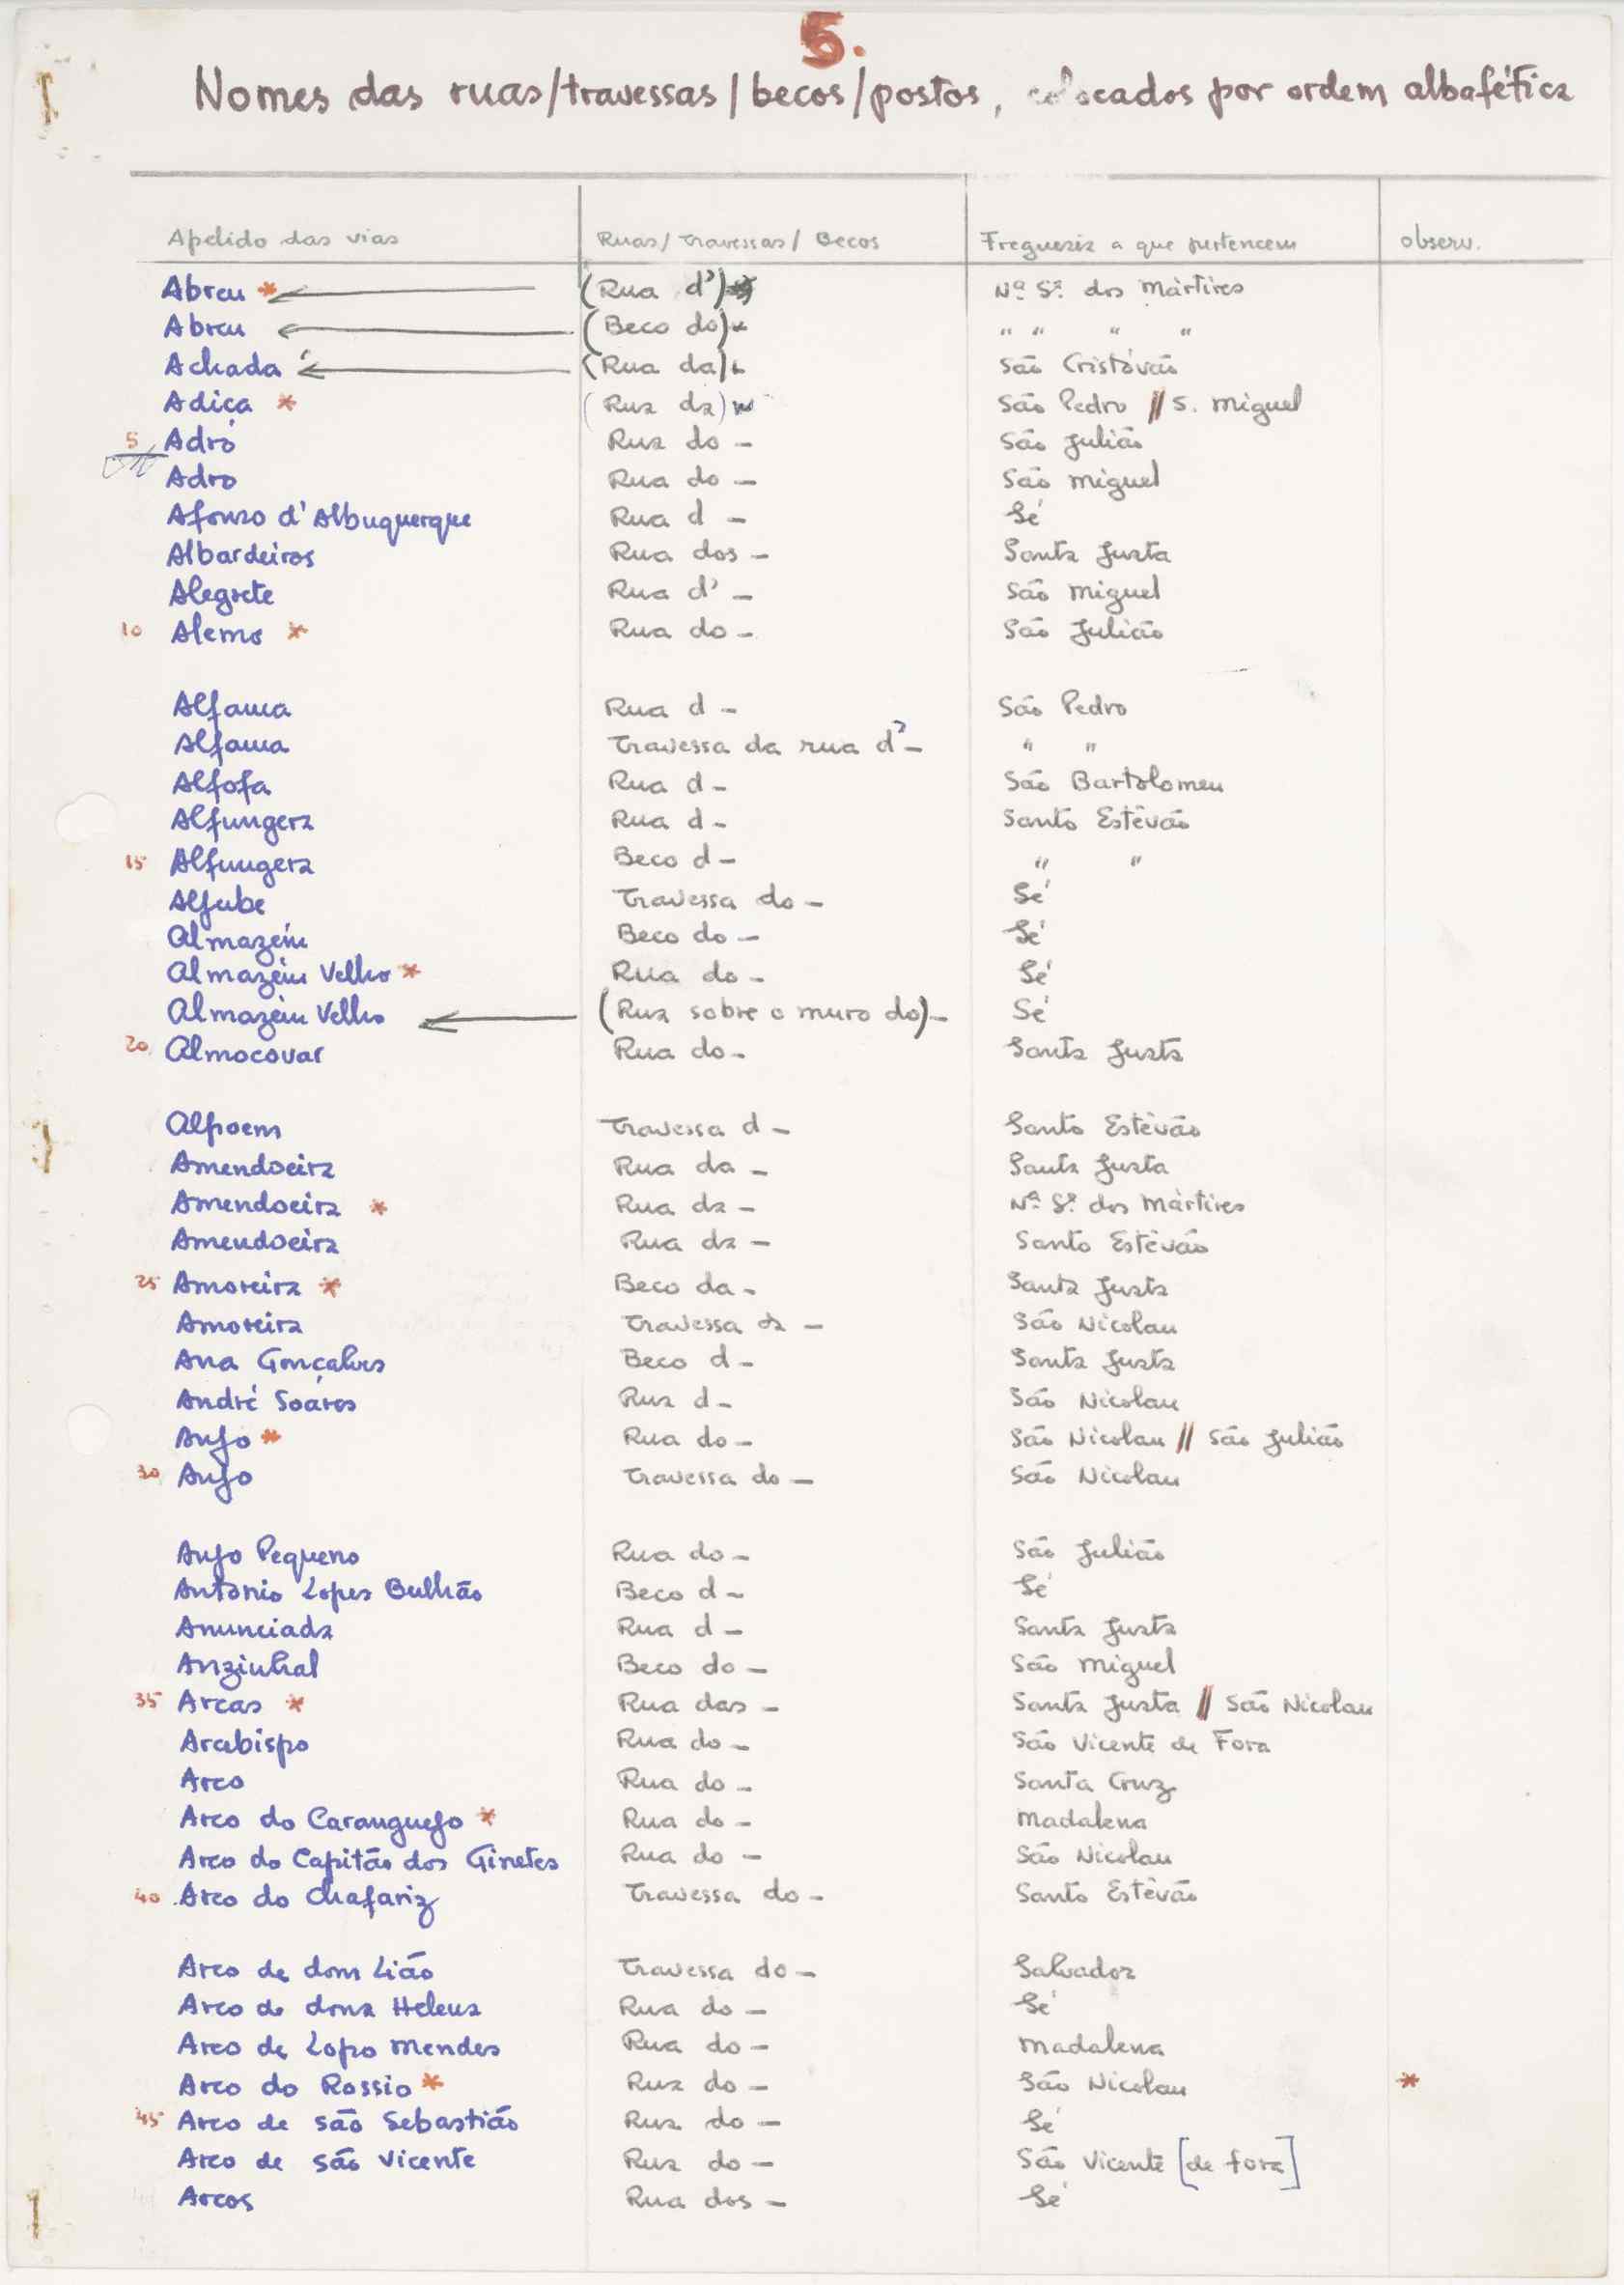 5.
Nomes das ruas/travessas/becos/postos, colocados por ordem albafética
Apelido das vias Ruas/Travessas/Becos Freguesia a que pertencem observ.
Abreu * (Rua d') Nª Sª dos Mártires
Abreu (Beco do) " " " "
Achada (Rua da) São Cristóvão
Adiça * (Rua da) São Pedro // S. Miguel
5 Adro Rua do - São Julião
Adro Rua do - São Miguel
Afonso d'Albuquerque Rua d - Sé
Albardeiros Rua dos - Santa Justa
Alegrete Rua d' - São Miguel
10 Alemo * Rua do - São Julião
Alfama Rua d - São Pedro
Alfama Travessa da rua d'- " "
Alfofa Rua d - São Bartolomeu
Alfungera Rua d - Santo Estêvão
15 Alfungera Beco d - " "
Aljube Travessa do - Sé
Almazém Beco do - Sé
Almazém Velho * Rua do - Sé
Almazém Velho (Rua sobre o muro do) - Sé
20 Almocovar Rua do - Santa Justa
Alpoem Travessa d - Santo Estêvão
Amendoeira Rua da - Santa Justa
Amendoeira * Rua da - Nª Sª dos Mártires
Amendoeira Rua da - Santo Estêvão
25 Amoreira * Beco da - Santa Justa
Amoreira Travessa da - São Nicolau
Ana Gonçalves Beco d - Santa Justa
André Soáres Rua d - São Nicolau
Anjo * Rua do - São Nicolau // São Julião
30 Anjo Travessa do - São Nicolau
Anjo Pequeno Rua do - São Julião
António Lopes Bulhão Beco d - Sé
Anunciada Rua d - Santa Justa
Anzinhal Beco do - São Miguel
35 Arcas * Rua das - Santa Justa // São Nicolau
Arcebispo Rua do - São Vicente de Fora
Arco Rua do - Santa Cruz
Arco do Caranguejo * Rua do - Madalena
Arco do Capitão dos Ginetes Rua do - São Nicolau
40 Arco do Chafariz Travessa do - Santo Estêvão
Arco de dom Lião Travessa do - Salvador
Arco de dona Helena Rua do - Sé
Arco de Lopo Mendes Rua do - Madalena
Arco do Rossio * Rua do - São Nicolau *
45 Arco de são Sebastião Rua do - Sé
Arco de são Vicente Rua do - São Vicente [de fora]
Arcos Rua dos - Sé